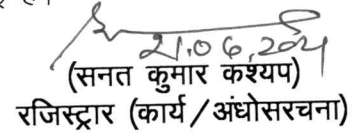 21.06.2024
(सनत कुमार कश्यप)
रजिस्ट्रार (कार्य / अंधोसरचना)